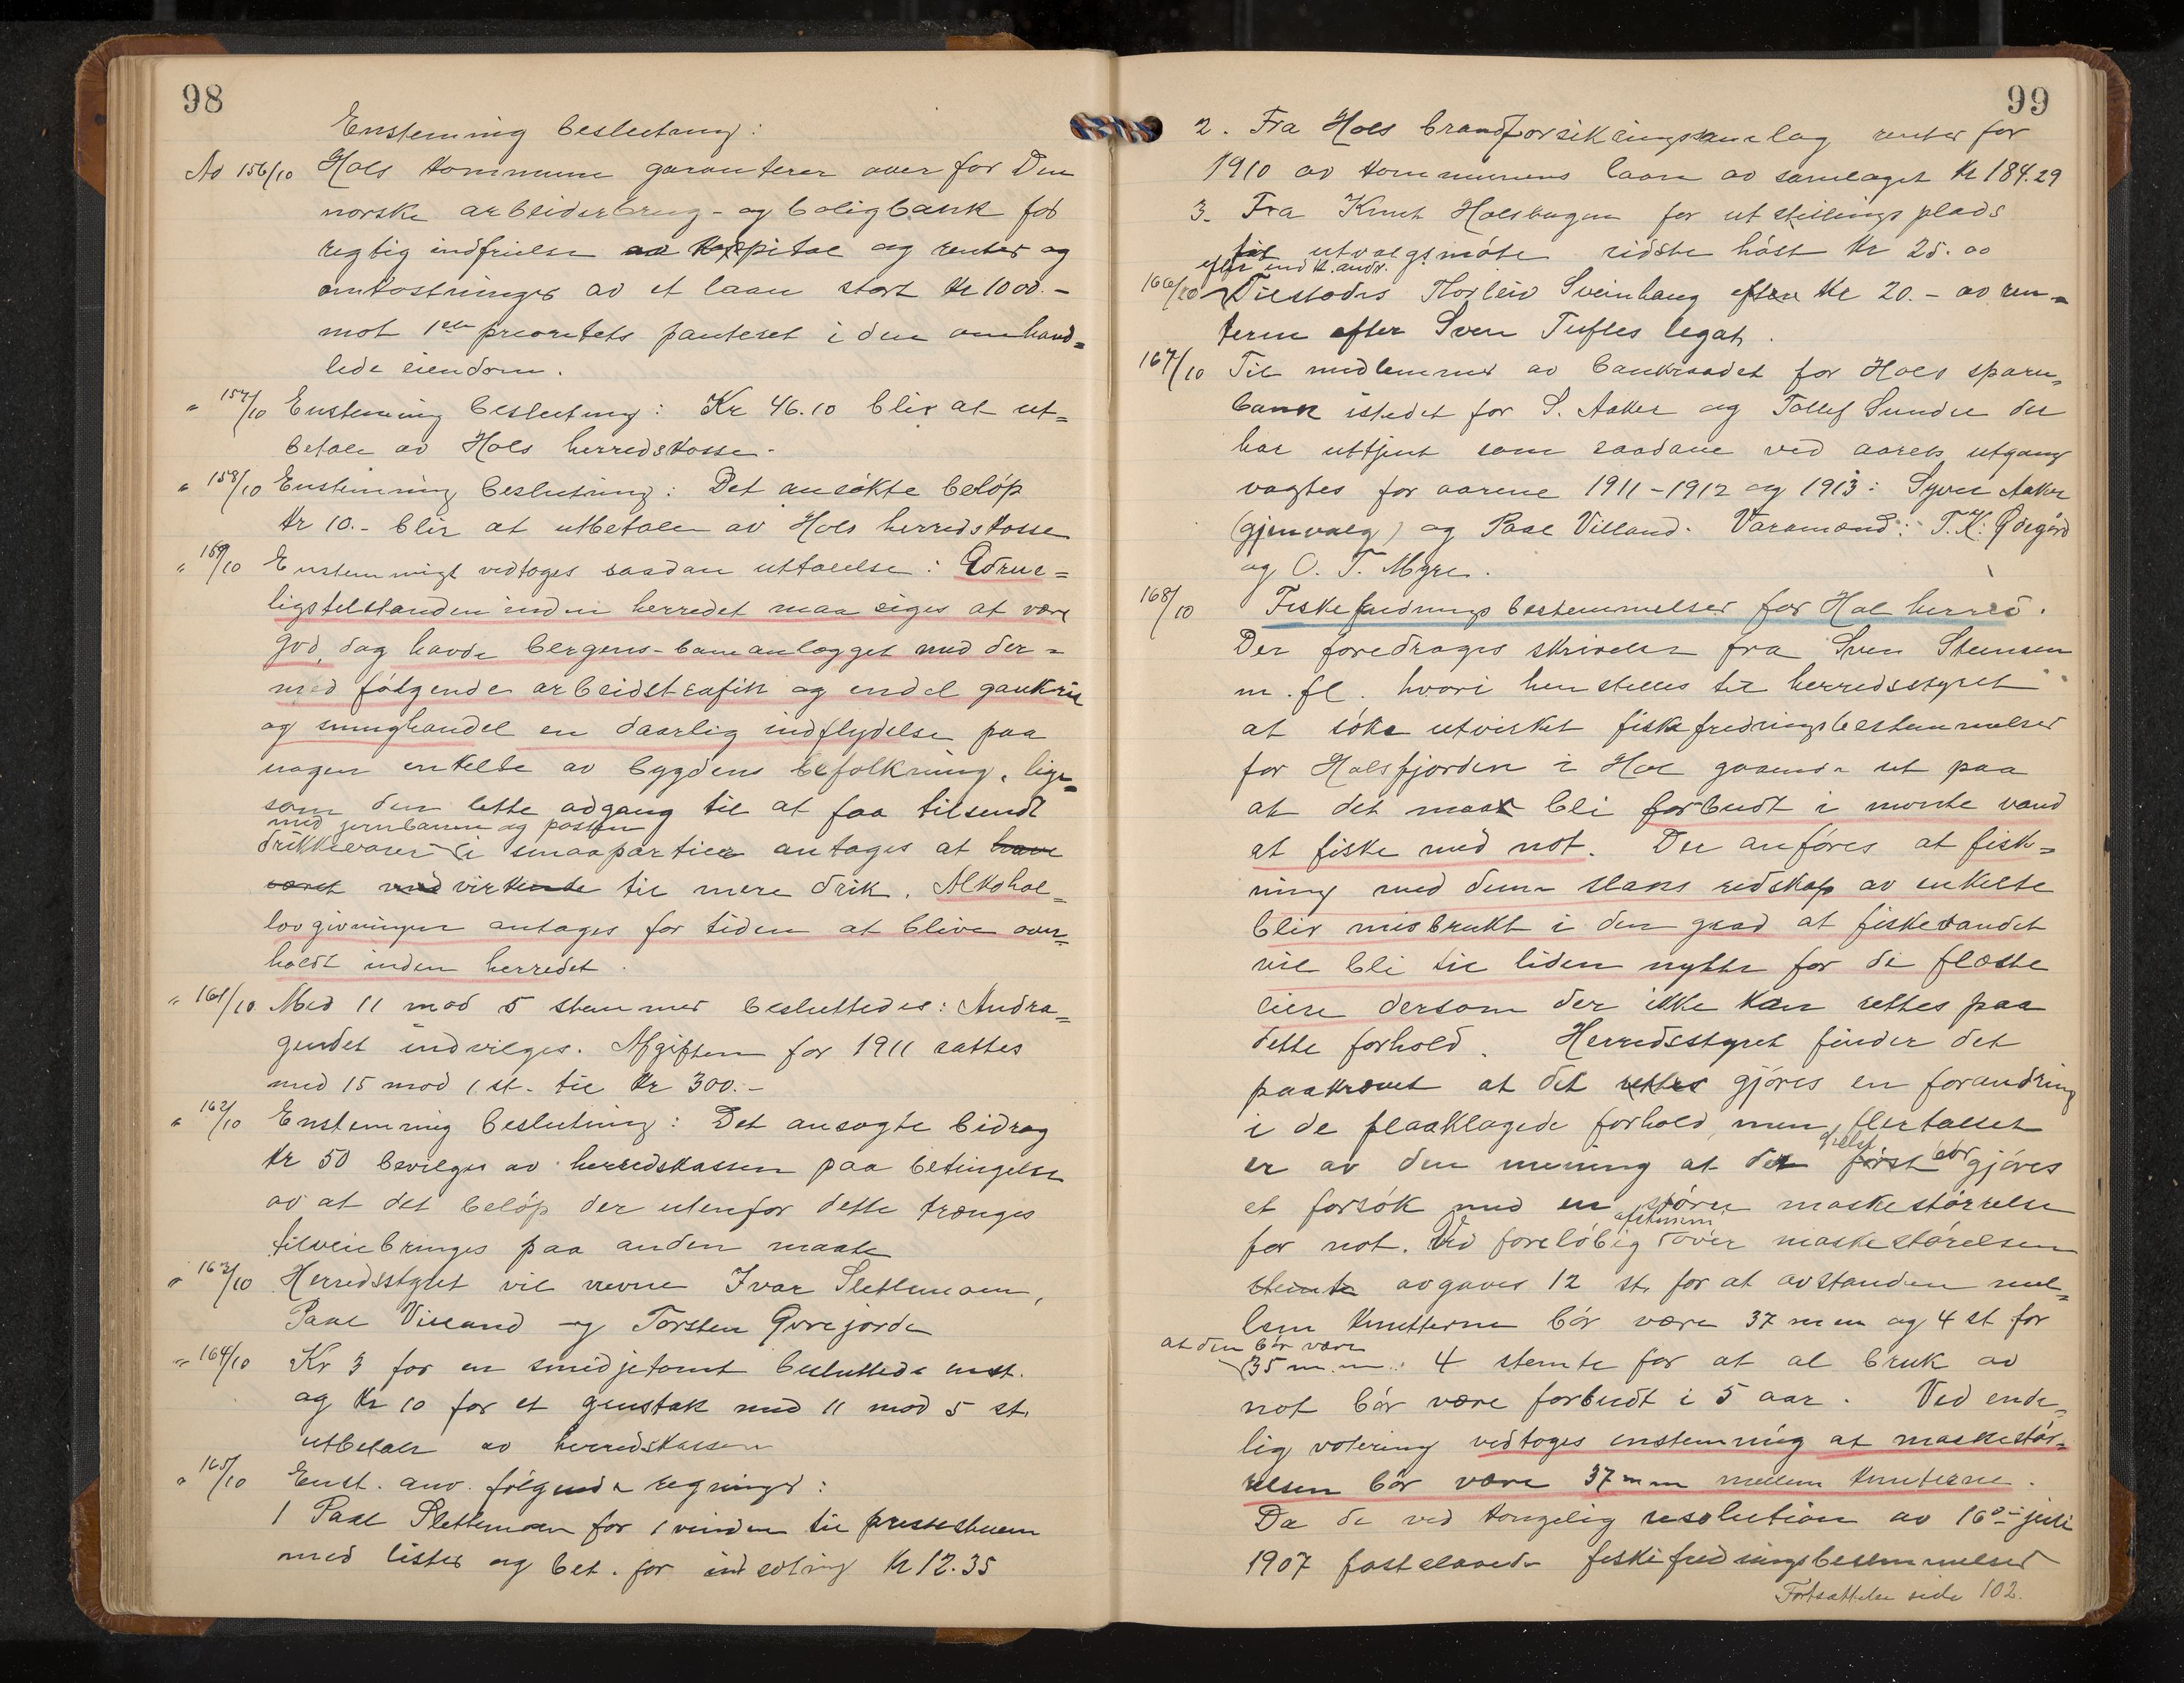 98
Enstemmig beslutning:
Ad 156/10 Hols kommune garanterer over for Den
norske arbeiderbrug- og boligbank for
rigtig indfrielse av kapital og renter og
omkostninger av et laan stort kr 1000.-
mot 1ste prioritets panteret i den omhand=
lede eiendom.
" 157/10 Enstemmig beslutning: Kr 46.10 blir at ut=
betale av Hols herredskasse.
" 158/10 Enstemmig beslutning: Det ansøkte beløp
kr 10.- blir at utbetale av Hols herredskasse
" 159/10 Enstemmigt vedtoges saadan uttalelse: Ædrue=
ligstilstanden inden herredet maa siges at være
god, dog havde bergens-baneanlægget med der=
med følgende arbeidstrafik og endel gaukeri
og smughandel en daarlig indflydelse paa
nogen enkelte av bygdens befolkning, lige=
som den lette adgang til at faa tilsendt
med jernbanen og posten
drikkevarer i smaapartier antages at have
været medvirkende til mere drik. Alkohol=
lovgivningen antages for tiden at blive over=
holdt inden herredet.
" 161/10 Med 11 mod 5 stemmer besluttedes: Andra=
gendet indvilges. Afgiften for 1911 sattes
med 15 mod 1 st. til kr 300.-
" 162/10 Enstemmig beslutning: Det ansøgte bidrag
kr 50 bevilges av herredskassen paa betingelse
av at det beløp der utenfor dette trænges
tilveiebringes paa anden maate
" 163/10 Herredsstyret vil nevne Ivar Slettemoen,
Paal Villand og Torsten Gurejorde
" 164/10 Kr 3 for en smidjetomt besluttede enst.
og kr 10 for et grustak med 11 mod 5 st.
utbetalt av herredskassen
" 165/10 Enst. anv. følgende regninger:
1 Paal Slettemoen for 1 vindu til prestestuen
med lister og bet. for indsetning kr 12.35
99
2. Fra Hols brandforsikringssamlag renter for
1910 av kommunens laan av samlaget kr 184.29
3. Fra Knut Holshagen for utstillingsplads
til utvalgsmøte sidste høst kr 25.00
efter indk. andr.
166/10 Tilstodes Thorleiv Sveinhaug efter kr 20.- av ren=
terne efter Sven Tuftes legat.
167/10 Til medlemmer av bankraadet for Hols spare=
bank istedet for S. Aaker og Tollef Sundre der
har uttjent som saadane ved aarets utgang
vagtes for aarene 1911-1912 og 1913: Syver Aaker
(gjenvalg) og Paal Villand. Varamænd: T. K. Ødegård
og O. T. Myre.
168/10 Fiskefredningsbestemmelser for Hol herred.
Der foredroges skrivelse fra Sven Stensen
m.fl. hvori henstilles til herredsstyret
at søke utvirket fiskefredningsbestemmelser
for Holsfjorden i Hol gaaende ut paa
at det maa bli forbudt i nevnte vand
at fiske med not. Der anføres at fisk=
ning med denne slags redskap av enkelte
blir misbrukt i den grad at fiskevandet
vil bli til liden nytte for de fleste
eiere dersom der ikke kan rettes paa
dette forhold. Herredsstyret finder det
paakrævet at det rettes gjøres en forandring
i de plaaklagede forhold, men flertallet
er av den mening at der først bør gjøres
et forsøk med en større maskestørrelse
for not. Ved foreløbig afstemn. over maskestørelsen
stemte avgaves 12 st. for at avstanden mel=
lem knutterne bør være 37 mm og 4 st for
at den bør være
35 m.m.: 4 stemte for at al bruk av
not bør være forbudt i 5 aar. Ved ende=
lig votering vedtoges enstemmig at maskestør=
relsen bør være 37 mm mellem knuterne.
Da de ved kongelig resolution av 16de juli
1907 fastslaaede fiskefredningsbestemmelser
Fortsættelse side 102.